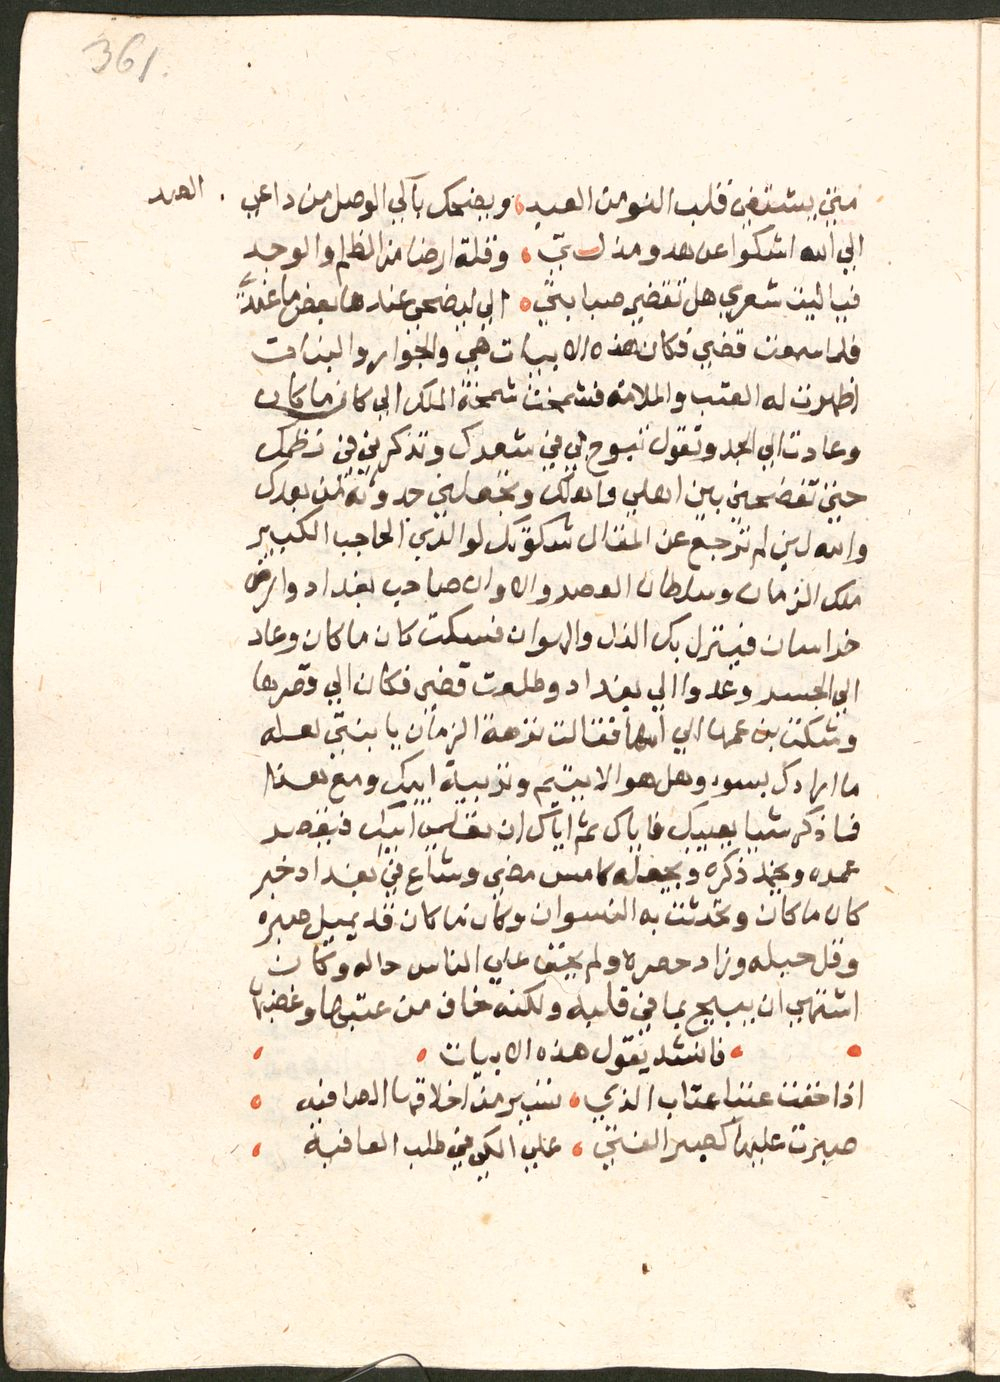 361.
متي يشتفي قلب الشومن العبد ، ويضحك بآلي الوصل من داعي . الصد
الي الله اشكوا عن هد ومذلتي ، وقلة ارضا من الظلم والوجد
فيا ليت شعري هل تقضي صبابتي ، الي ليضحي عندها بعض ما عندي
فلما سمعت قضي فكان هذه الابيات هي والجوار والبنات
اظهرت له العتب والملامه فشمخت شمخة الملك الي كان ما كان
وعادت الي الجد وتقول تبوح بي في شعرك وتذكرني في نظمك
حتي تفضحني بين اهلي واهلك وتجعلني حدوثة لمن بعدك
والله لين لم ترجع عن المقال شكوتك لوالدي الحاجب الكبير
ملك الزمان وسلطان العصر والاوان صاحب بغداد وارض
خراسان فينزل بك الذل والهوان فسكت كان ما كان وعاد
الي الجسر وعدوا الي بغداد وطلعت قضي فكان الي قصرها
وشكت بن عمها الي امها فقالت نزهة الزمان يا بنتي لعله
ما ارادك بسوء وهل هو الا يتيم وتربية ابيك ومع هذا
فما ذكر شيا يعيبك فاياك ثم اياك ان تعلمي ابيك فيقصر
عمره ويخمد ذكره ويجعله كامس مضي وشاع في بغداد خبر
كان ما كان وتحدثت به النسوان وكان ما كان قد عيل صبره
وقل حيله وزاد حصره ولم يخف علي الناس حاله وكان
اشتهي ان يبيح بما في قلبه ولكنه خاف من عتبها وغضبها
، ، فانشد يقول هذه الابيات ، ،
اذا خفت عتبا عتاب الذي ، تغير من اخلاقها الصافيه ،
صبرت عليها كصبر الفتي ، علي الكي في طلب العافية ،